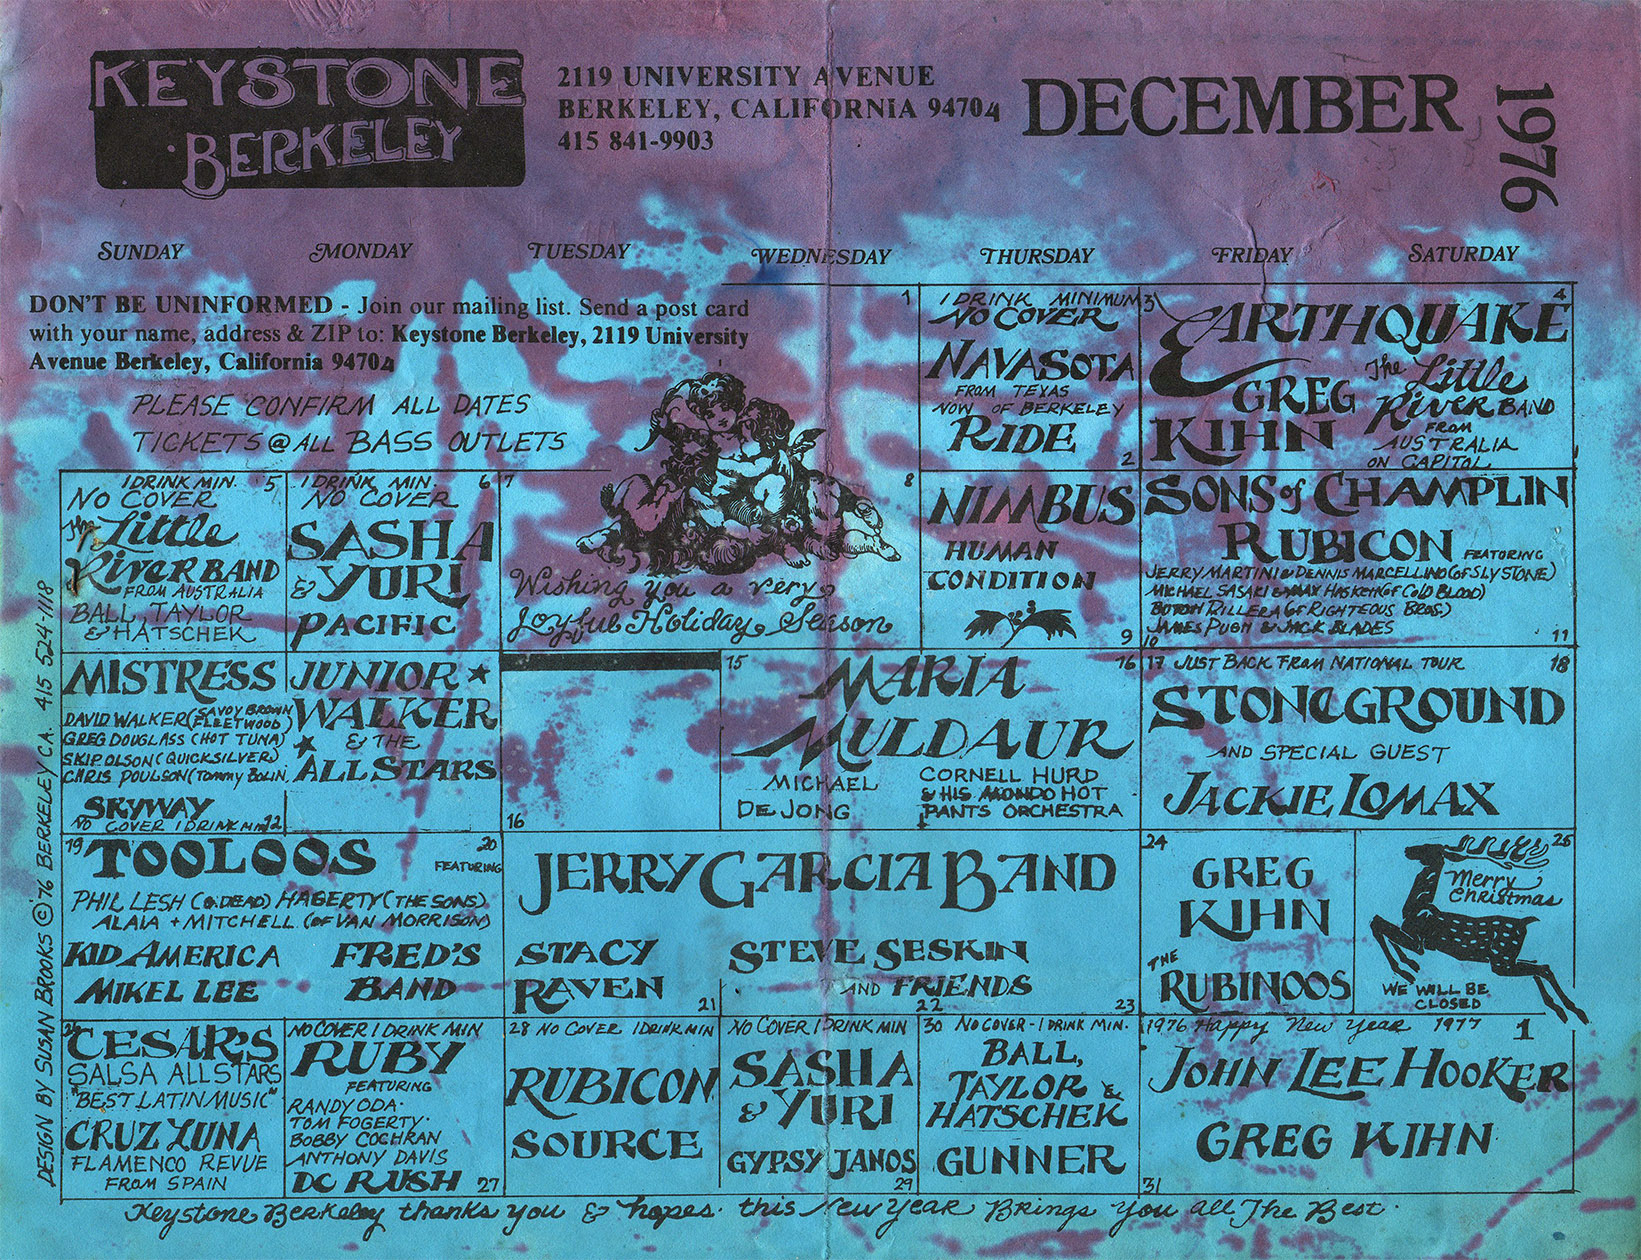 KEYSTONE
BERKELEY
2119 UNIVERSITY AVENUE
BERKELEY, CALIFORNIA 94704
415 841-9903
DECEMBER
1976
SUNDAY
MONDAY
TUESDAY
WEDNESDAY
THURSDAY
FRIDAY
SATURDAY
DON'T BE UNINFORMED - Join our mailing list. Send a post card
with your name, address & ZIP to: Keystone Berkeley, 2119 University
Avenue Berkeley, California 94704
PLEASE CONFIRM ALL DATES
TICKETS @ ALL BASS OUTLETS
1
1 DRINK MINIMUM
NO COVER
NAVASOTA
FROM TEXAS
NOW OF BERKELEY
RIDE
2
3
4
EARTHQUAKE
GREG
KIHN
The Little
River BAND
FROM
AUSTRALIA
ON CAPITOL
1 DRINK MIN. 5
NO COVER
The Little
River BAND
FROM AUSTRALIA
BALL, TAYLOR
& HATSCHEK
1 DRINK MIN. 6
NO COVER
SASHA
& YURI
PACIFIC
7
8
Wishing you a very
Joyful Holiday Season
NIMBUS
HUMAN
CONDITION
9
SONS of CHAMPLIN
RUBICON FEATURING
JERRY MARTINI & DENNIS MARCELLINO (of SLY STONE)
MICHAEL SASAKI & MAX HASKETT (of COLD BLOOD)
RILLERA (of RIGHTEOUS BROS.)
JAMES PUGH & JACK BLADES
10
11
MISTRESS
DAVID WALKER (SAVOY BROWN
FLEETWOOD)
GREG DOUGLASS (HOT TUNA)
SKIP OLSON (QUICKSILVER)
CHRIS POULSON (Tommy BOLIN)
SKYWAY
NO COVER 1 DRINK MIN 12
JUNIOR
WALKER
& THE
ALL STARS
16
15
16
MARIA
MULDAUR
MICHAEL
DE JONG
CORNELL HURD
& HIS MONDO HOT
PANTS ORCHESTRA
17 JUST BACK FROM NATIONAL TOUR 18
STONEGROUND
AND SPECIAL GUEST
JACKIE LOMAX
19
20
TOOLOOS
FEATURING
PHIL LESH (G. DEAD) HAGERTY (THE SONS)
ALAIA + MITCHELL (OF VAN MORRISON)
KID AMERICA
MIKEL LEE
FRED'S
BAND
JERRY GARCIA BAND
STACY
RAVEN
21
STEVE SESKIN
AND FRIENDS
22
23
24
GREG
KIHN
THE
RUBINOOS
25
Merry
Christmas
WE WILL BE
CLOSED
26
CESAR'S
SALSA ALL STARS
"BEST LATIN MUSIC"
CRUZ LUNA
FLAMENCO REVUE
FROM SPAIN
NO COVER 1 DRINK MIN
RUBY
FEATURING
RANDY ODA·
TOM FOGERTY·
BOBBY COCHRAN
ANTHONY DAVIS
DC RUSH 27
28 NO COVER 1 DRINK MIN
RUBICON
SOURCE
NO COVER 1 DRINK MIN
SASHA
& YURI
GYPSY JANOS
29
30 NO COVER - 1 DRINK MIN.
BALL,
TAYLOR &
HATSCHEK
GUNNER
1976 Happy New Year 1977 1
JOHN LEE HOOKER
GREG KIHN
31
Keystone Berkeley thanks you & hopes this New Year Brings you all The Best.
DESIGN BY SUSAN BROOKS © '76 BERKELEY CA. 415 524-1118